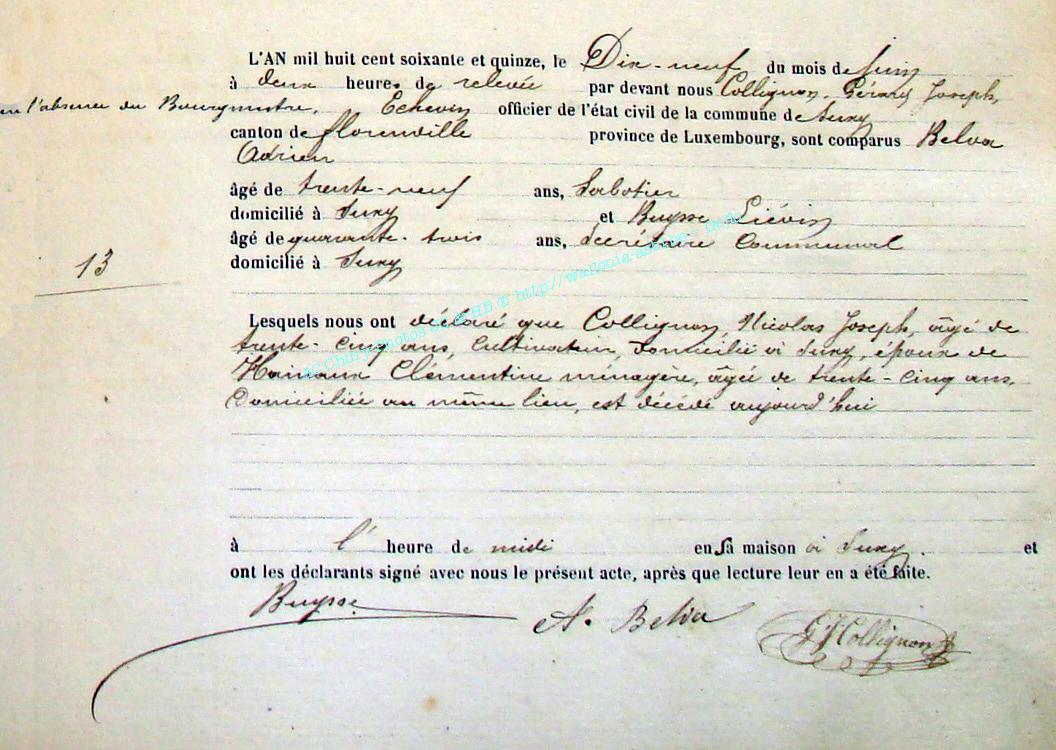 L'AN mil huit cent soixante et quinze, le Dix-neuf du mois de Juin
à deux heures de relevée par devant nous Collignon, Gérard Joseph,
en l'absence du Bourgmestre, Echevin officier de l'état civil de la commune de Suxy
canton de florenville province de Luxembourg, sont comparus Belva
Adrien
âgé de trente-neuf ans, Sabotier
domicilié à Suxy et Buysse Liévin
âgé de quarante-trois ans, Secrétaire Communal
domicilié à Suxy
13
Lesquels nous ont déclaré que Collignon, Nicolas Joseph, âgé de
trente-cinq ans, Cultivateur, domicilié à Suxy, époux de
Hainaux Clémentine ménagère, âgée de trente-cinq ans,
Domiciliée au même lieu, est décédé aujourd'hui
à l' heure de midi en sa maison à Suxy. et
ont les déclarants signé avec nous le présent acte, après que lecture leur en a été faite.
Buysse
A. Belva
GJCollignon